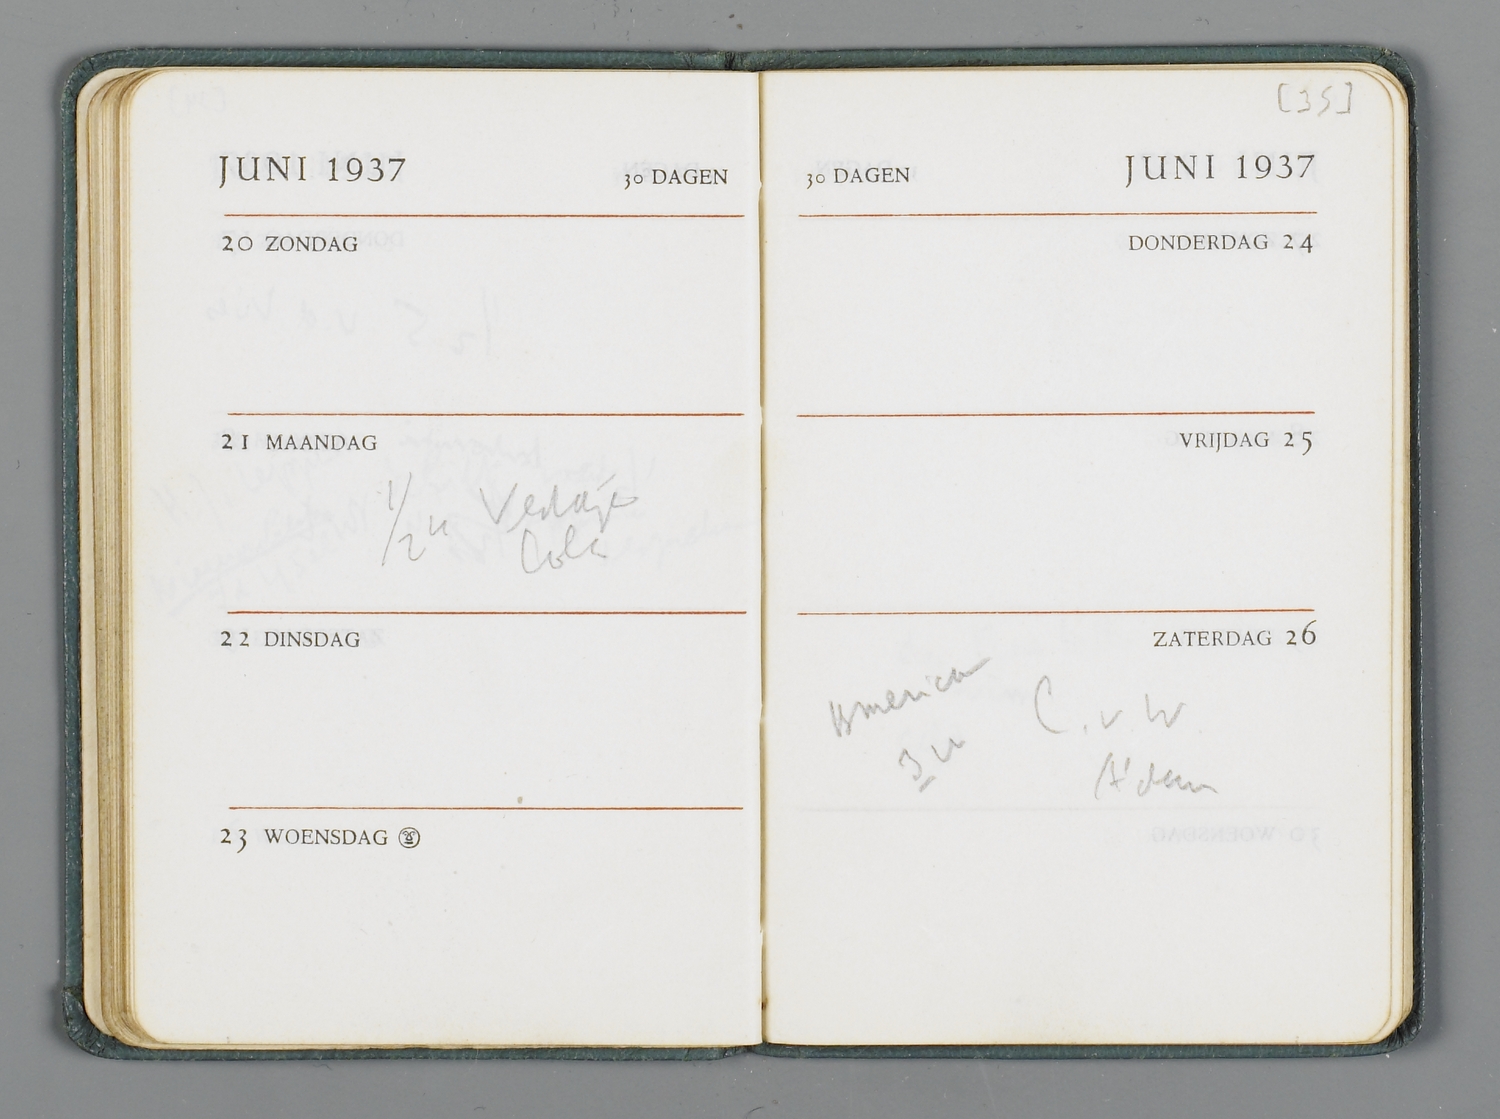 JUNI 1937
30 DAGEN
20 ZONDAG
21 MAANDAG
1/2 u
Cola
22 DINSDAG
23 WOENSDAG
[35]
30 DAGEN
JUNI 1937
DONDERDAG 24
VRIJDAG 25
ZATERDAG 26
American
3 u
C. v. W.
A'dam